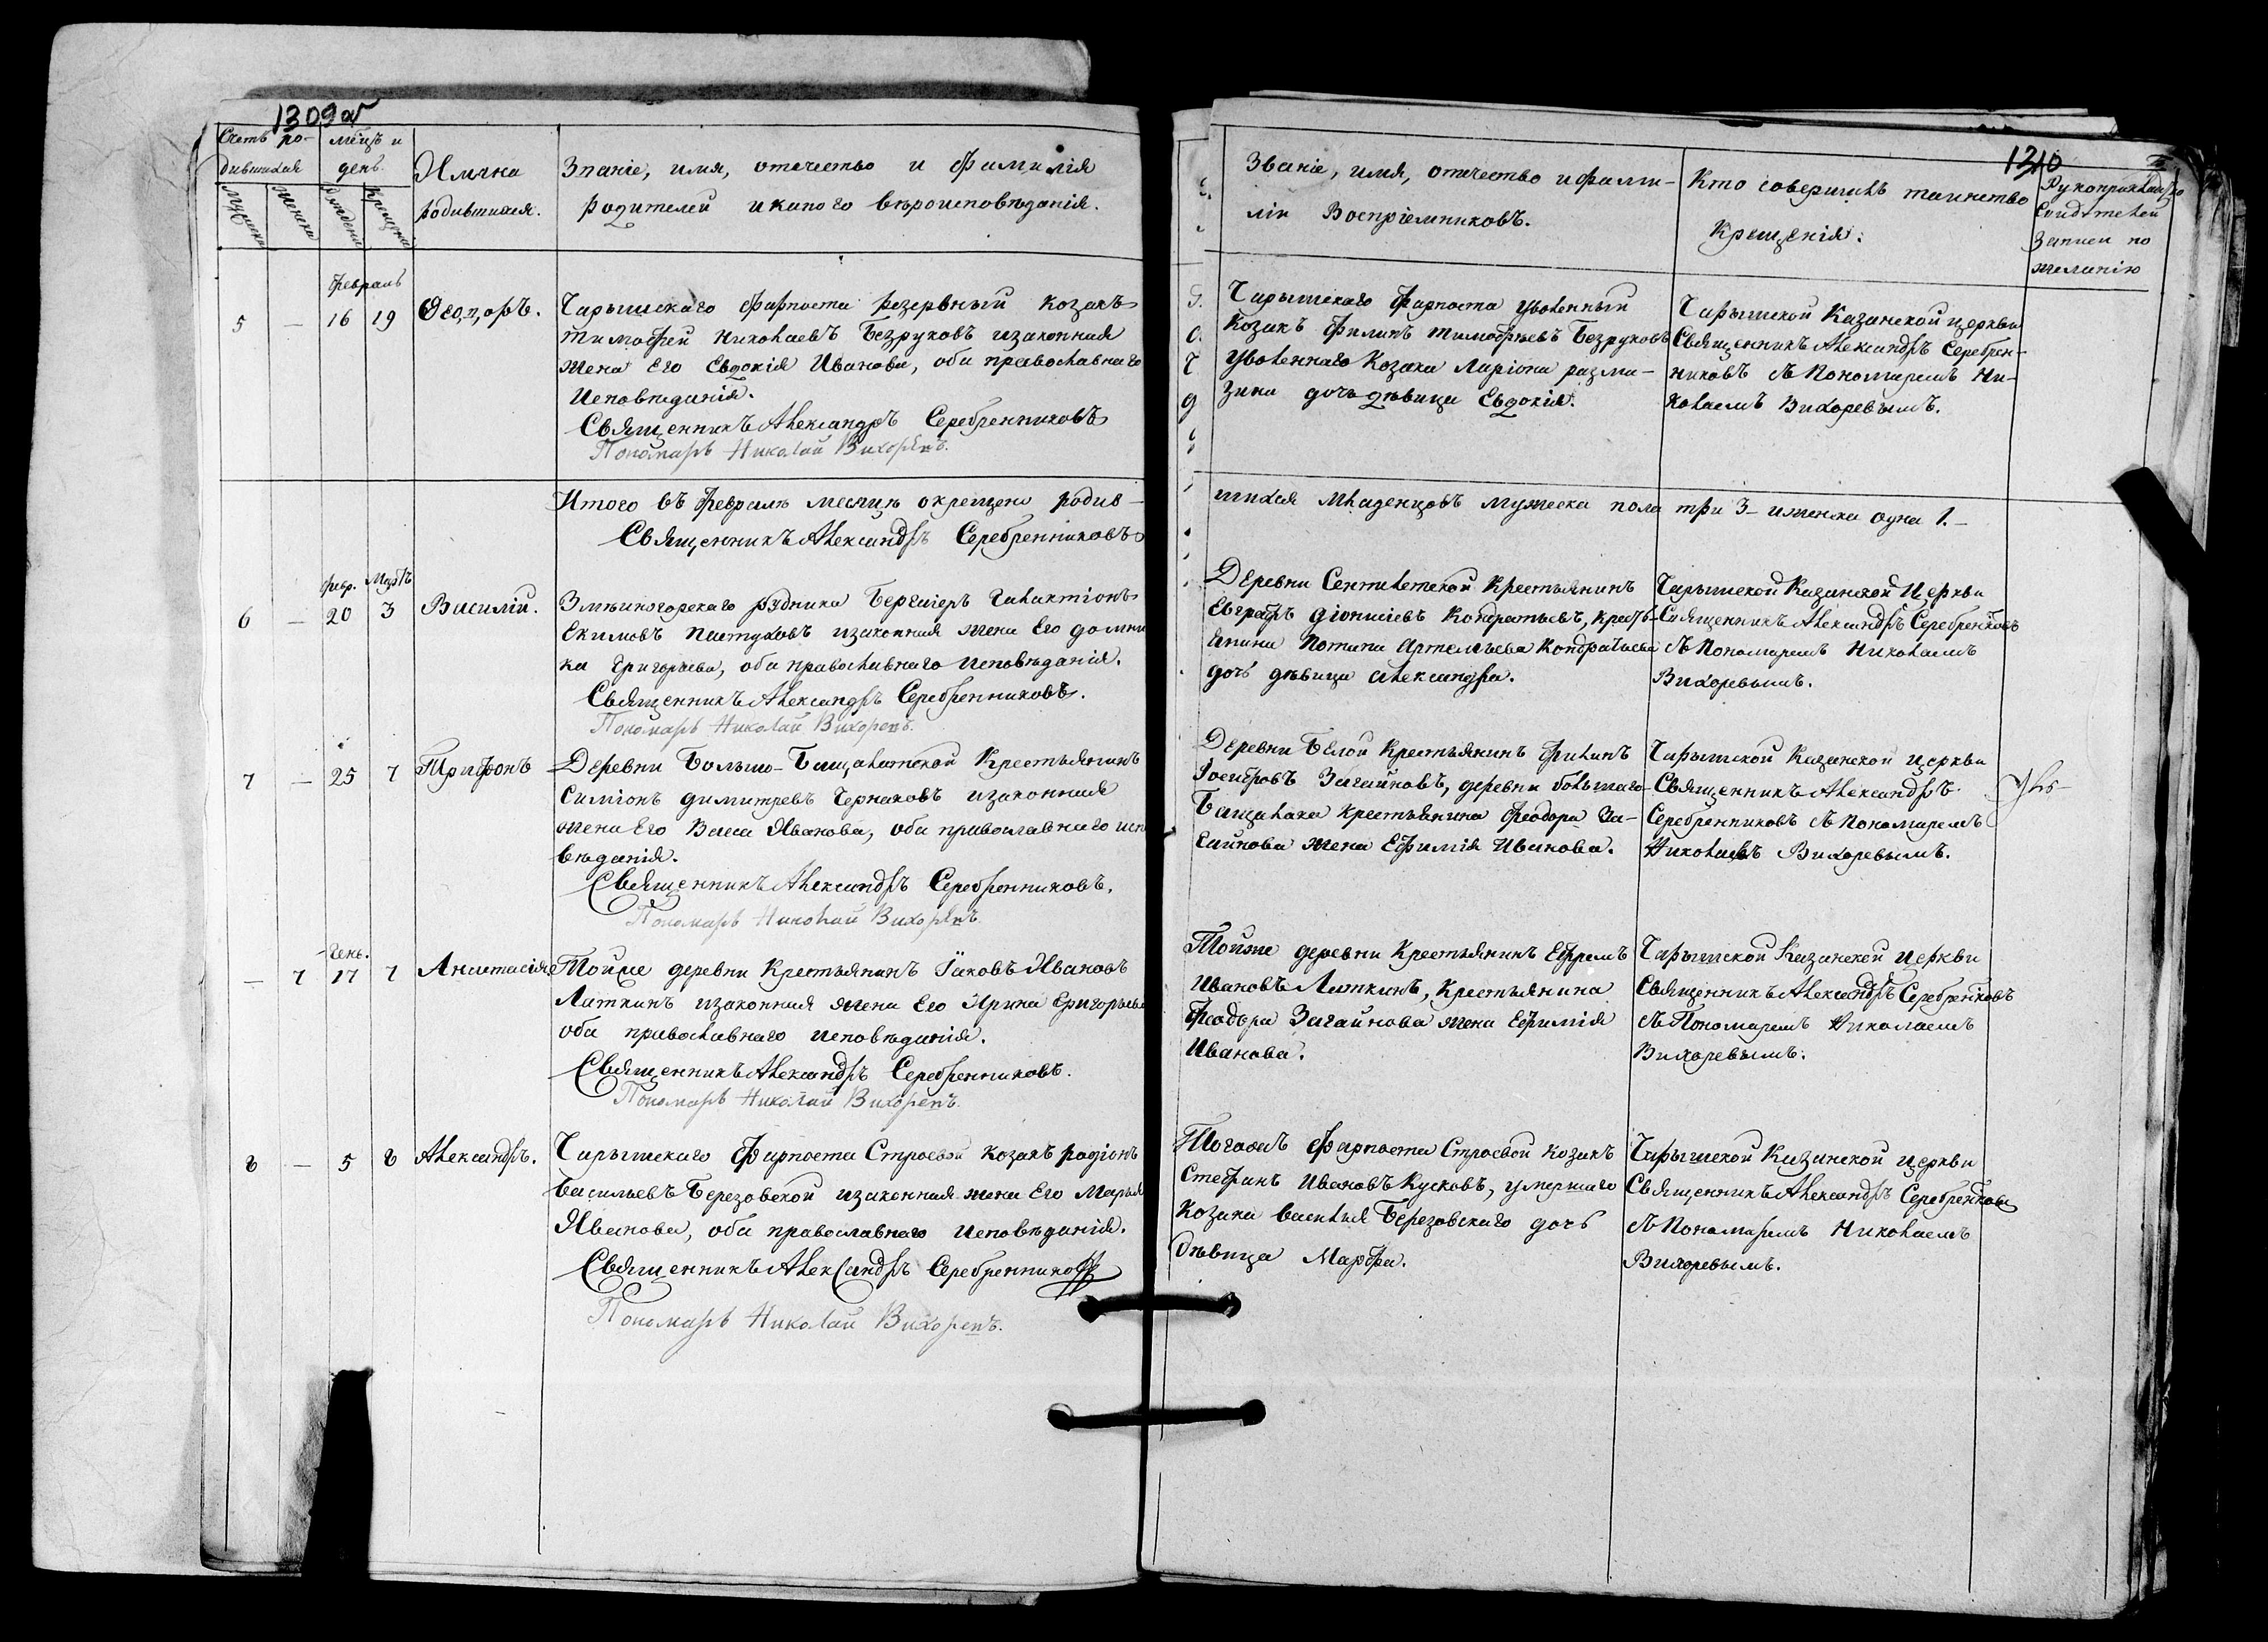 1309а
Счетъ ро-
дившихся
мѣцъ и
день.
Мужеска
Женска
Рожденія
Крещенія
Имяна
родившихся.
Званіе, имя, отчество и Фамилія
родителей и какого вѣроисповѣданія.
Февраль
5 — 16 19 Ѳеодоръ.
Чарышскаго Фарпоста резервный козакъ
тимофей николаевъ Безруковъ изаконная
жена Его Евдокія Иванова, оба православнаго
Исповѣданія.
Священникъ Александръ Серебренниковъ
Пономарь Николай Вихоревъ.
Итого въ Февралѣ месяцѣ окрещено родив-
Священникъ Александръ Серебренниковъ
февр. Мартъ
6 — 20 3 Василій.
Змѣиногорскаго рудника Бергаіеръ Галактіонъ
Екимовъ Пастуховъ изаконная жена Его домни
ка Григорьева, оба православнаго Исповѣданія.
Священникъ Александръ Серебренниковъ.
Пономарь Николай Вихоревъ.
7 — 25 7 Трифонъ
Деревни Больше-Бащалатской Крестьянинъ
Симіонъ димитревъ Черпаковъ изаконная
жена Его Васса Иванова, оба православнаго исп
вѣданія.
Священникъ Александръ Серебренниковъ.
Пономарь Николай Вихоревъ.
Генв.
— 7 17 7 Анастасія
Тойже деревни Крестьянинъ Іаковъ Ивановъ
Латкинъ изаконная жена Его Ирина Григорьева
оба православнаго исповѣданія.
Священникъ Александръ Серебренниковъ.
Пономарь Николай Вихоревъ.
8 — 5 8 Александръ.
Чарышскаго Фарпоста Строевой козакъ родіонъ
Васильевъ Березовской изаконная жена Его Марья
Иванова, оба православнаго Исповѣданія.
Священникъ Александръ Серебренниковъ
Пономарь Николай Вихоревъ.
1310
Званіе, имя, отчество и фами-
ліи Воспріемниковъ.
Кто совершилъ таинство
Крещенія.
Рукоприкладство
Свидѣтелей
Записи по
желанію
Чарышскаго Фарпоста уволенный
Козакъ Филипъ тимофѣевъ Безруковъ
уволеннаго Козака Ларіона разма-
зина дочь дѣвица Евдокія.
Чарышской Казанской церкви
Священникъ Александръ Серебрен-
никовъ съ Пономаремъ Ни-
колаемъ Вихоревымъ.
шихся младенцовъ мужеска пола три 3 - иженска одна 1. -
Деревни Сентелетской Крестьянинъ
Евграфъ діонисіевъ Кондратьевъ, крестьь-
янина Потапа Артемьева Кондратьева
дочь дѣвица Александра.
Чарышской Казанской Церкви
Священникъ Александръ Серебренниковъ
съ Пономаремъ Николаемъ
Вихоревымъ.
Деревни Белой Крестьянинъ Филипъ
Іосифовъ Загайновъ, деревни большаго
Бащалака крестьянина Феодора За-
гайнова жена Ефимія Иванова.
Чарышской Казанской церкви
Священникъ Александръ
Серебренниковъ съ Пономаремъ
Николаемъ Вихоревымъ.
Тойже деревни Крестьянинъ Ефремъ
Ивановъ Латкинъ, крестьянина
Феодора Загайнова жена Ефимія
Иванова.
Чарышской Казанской церкви
Священникъ Александръ Серебренниковъ
съ Пономаремъ Николаемъ
Вихоревымъ.
Тогожъ Фарпоста Строевой козакъ
Стефанъ Ивановъ Кусковъ, умершаго
Козака Василья Березовскаго дочь
дѣвица Марфа.
Чарышской Казанской церкви
Священникъ Александръ Серебренниковъ
съ Пономаремъ Николаемъ
Вихоревымъ.